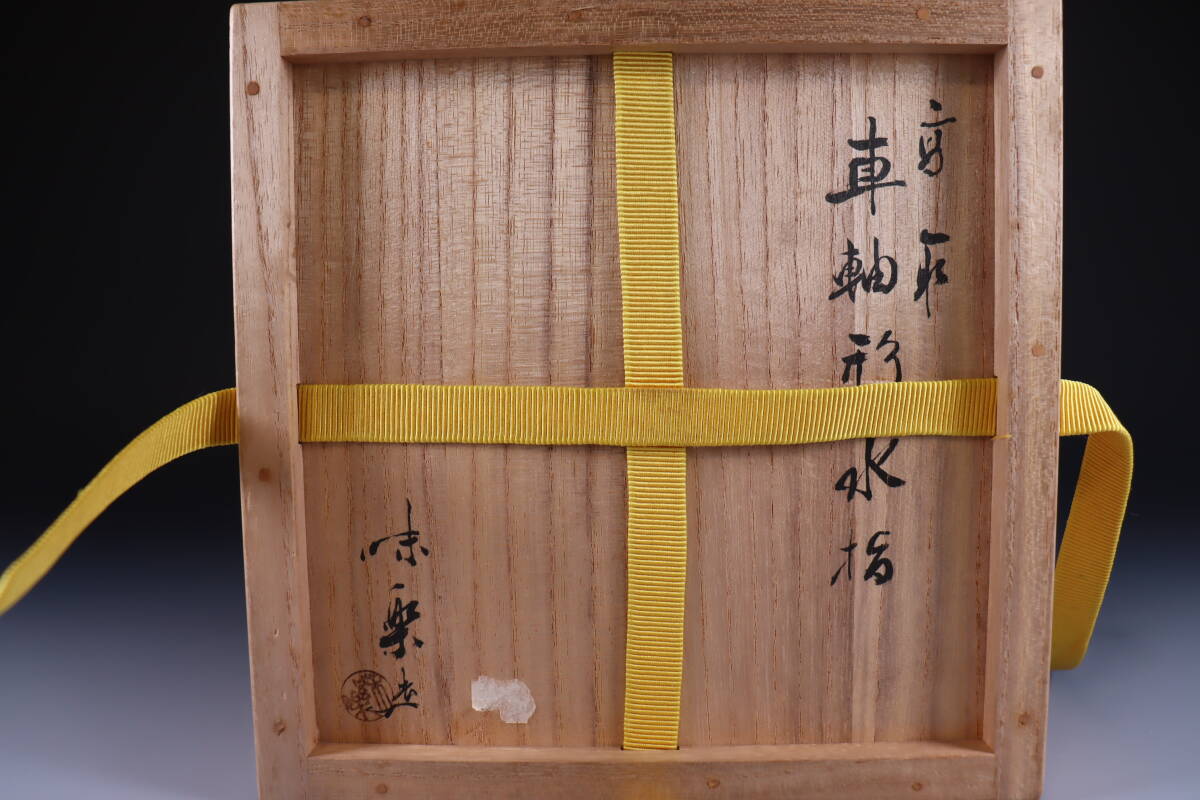 高取
車軸形水指
味楽造